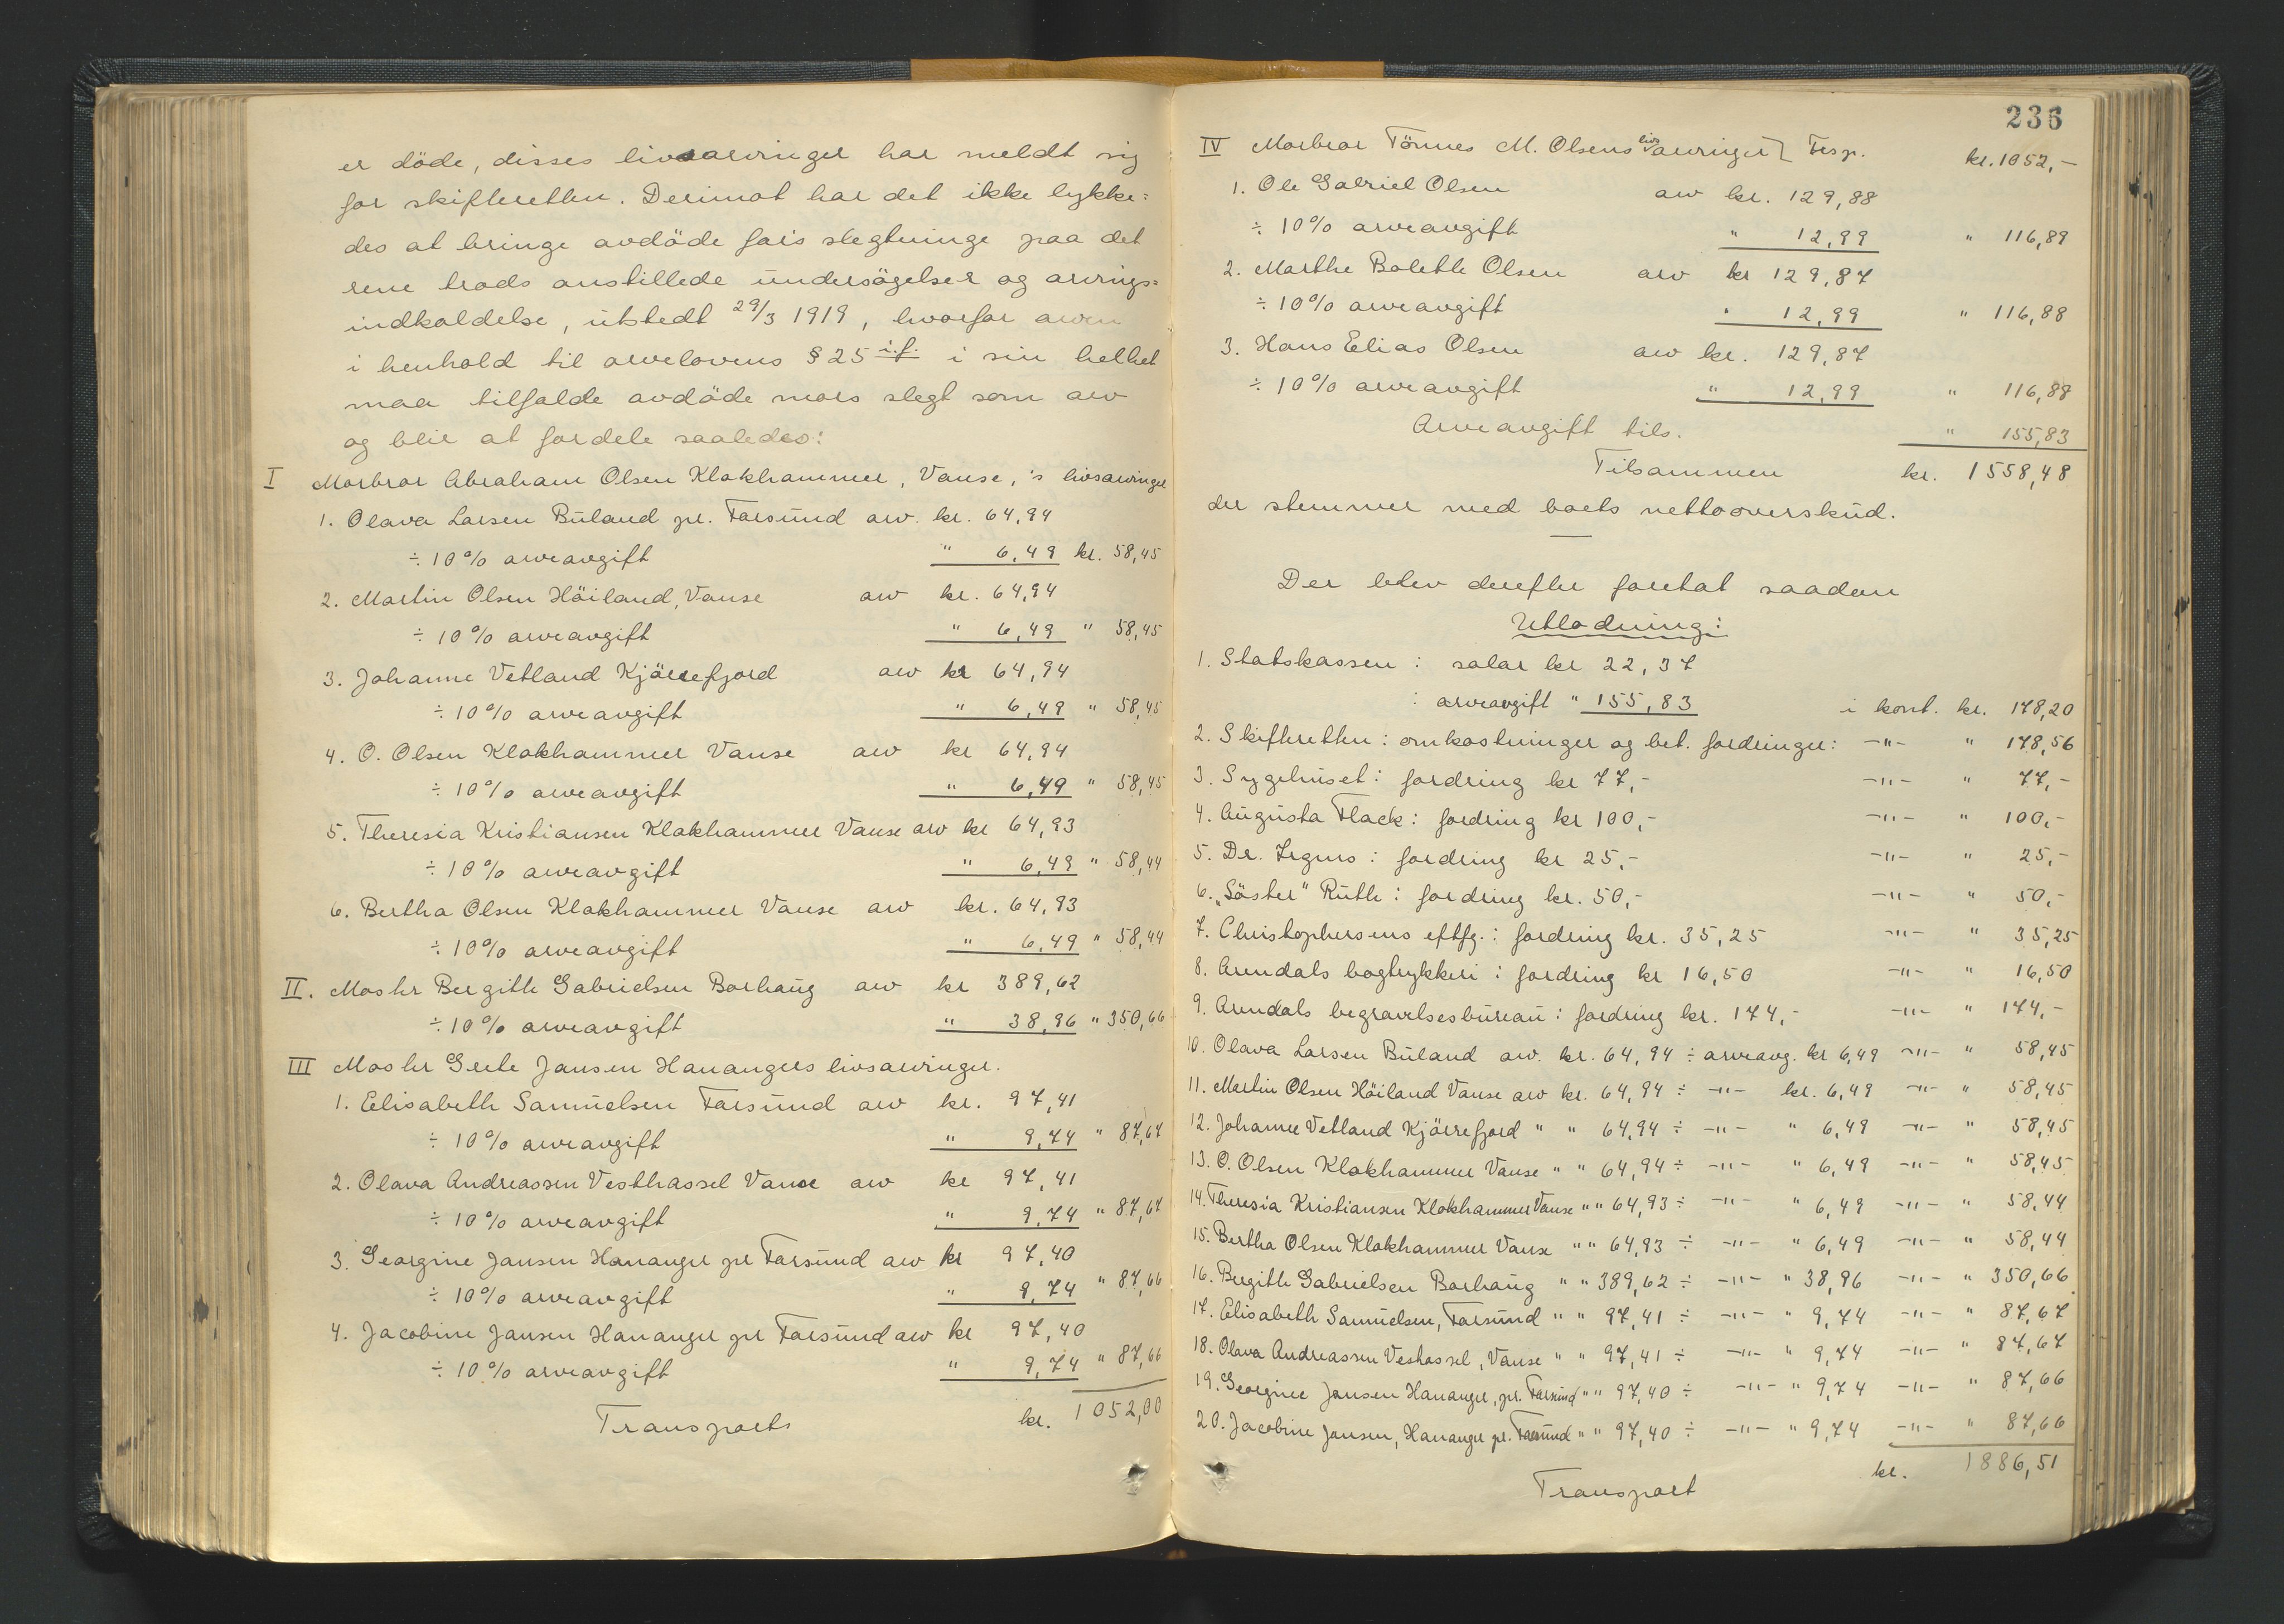 er döde, disses livsarvinger har meldt sig
for skifteretten. Derimot har det ikke lykke=
des at bringe avdöde fars slegtninge paa det
rene trods anstillede undersögelser og arvings=
indkaldelse, utstedt 29/3 1919, hvorfor arven
i henhold til arvelovens § 25 i.f. i sin helhet
maa tilfalde avdöde mors slegt som arv
og blir at fordele saaledes:
I Morbror Abraham Olsen Klokhammer, Vanse, 's livsarvinger
1. Olava Larsen Buland pr. Farsund arv. kr. 64,94
÷ 10% arveavgift " 6,49 kr. 58,45
2. Martin Olsen Höiland, Vanse arv kr. 64,94
÷ 10% arveavgift " 6,49 " 58,45
3. Johanne Vetland Kjörrefjord arv kr 64,94
÷ 10% arveavgift " 6,49 " 58,45
4. O. Olsen Klokhammer Vanse arv kr 64,94
÷ 10% arveavgift " 6,49 " 58,45
5. Theresia Kristiansen Klokhammer Vanse arv kr 64,93
÷ 10% arveavgift " 6,49 " 58,44
6. Bertha Olsen Klokhammer Vanse arv kr. 64,93
÷ 10% arveavgift " 6,49 " 58,44
II. Moster Bergitte Gabrielsen Borhaug arv kr 389,62
÷ 10% arveavgift " 38,96 " 350,66
III Moster Grete Jansen Hanangers livsarvinger.
1. Elisabeth Samuelsen Farsund arv kr. 97,41
÷ 10% arveavgift " 9,74 " 87,67
2. Olava Andreassen Vesthassel Vanse arv kr 97,41
÷ 10% arveavgift " 9,74 " 87,67
3. Georgine Jansen Hananger pr Farsund arv kr 97,40
÷ 10% arveavgift " 9,74 " 87,66
4. Jacobine Jansen Hananger pr Farsund arv kr 97,40
÷ 10% arveavgift " 9,74 " 87,66
Transports kr. 1052,00
236
IV Morbror Tönnes M. Olsens livsarvinger Tresp. kr. 1052,-
1. Ole Gabriel Olsen arv kr. 129,88
÷ 10% arveavgift " 12,99 " 116,89
2. Marthe Bolette Olsen arv kr 129,87
÷ 10% arveavgift " 12,99 " 116,88
3. Hans Elias Olsen arv kr. 129,87
÷ 10% arveavgift " 12,99 " 116,88
Arveavgift tils. " 155,83
Tilsammen kr. 1558,48
der stemmer med boets nettooverskud.
Der blev derefter foretat saadan
Utlodning:
1. Statskassen : salar kr 22,37
: arveavgift " 155,83 i kont. kr. 178,20
2. Skifteretten : omkostninger og bet. fordringer: -"- " 178,56
3. Sygehuset : fordring kr 77,- -"- " 77,-
4. Augusta Flack : fordring kr 100,- -"- " 100,-
5. Dr. : fordring kr 25,- -"- " 25,-
6. „Söster" Ruth : fordring kr. 50,- -"- " 50,-
7. Christophersens eftfg. : fordring kr. 35,25 -"- " 35,25
8. Arendals bogtrykkeri : fordring kr 16,50 -"- " 16,50
9. Arendals begravelsesbureau : fordring kr. 174,- -"- " 174,-
10. Olava Larsen Buland arv. kr. 64,94 ÷ arveavg. kr 6,49 -"- " 58,45
11. Martin Olsen Höiland Vanse arv kr. 64,94 ÷ -"- kr. 6,49 -"- " 58,45
12. Johanne Vetland Kjörrefjord " " 64,94 ÷ -"- " 6,49 -"- " 58,45
13. O. Olsen Klokhammer Vanse " " 64,94 ÷ -"- " 6,49 -"- " 58,45
14. Theresia Kristiansen Klokhammer Vanse " " 64,93 ÷ -"- " 6,49 -"- " 58,44
15. Bertha Olsen Klokhammer Vanse " " 64,93 ÷ -"- " 6,49 -"- " 58,44
16. Bergitte Gabrielsen Borhaug " " 389,62 ÷ -"- " 38,96 -"- " 350,66
17. Elisabeth Samuelsen, Farsund " " 97,41 ÷ -"- " 9,74 -"- " 87,67
18. Olava Andreassen Vesthassel, Vanse " " 97,41 ÷ -"- " 9,74 -"- " 87,67
19. Georgine Jansen Hananger, pr. Farsund " " 97,40 ÷ -"- " 9,74 -"- " 87,66
20. Jacobine Jansen, Hananger pr. Farsund " " 97,40 ÷ -"- " 9,74 -"- " 87,66
Transport kr. 1886,51